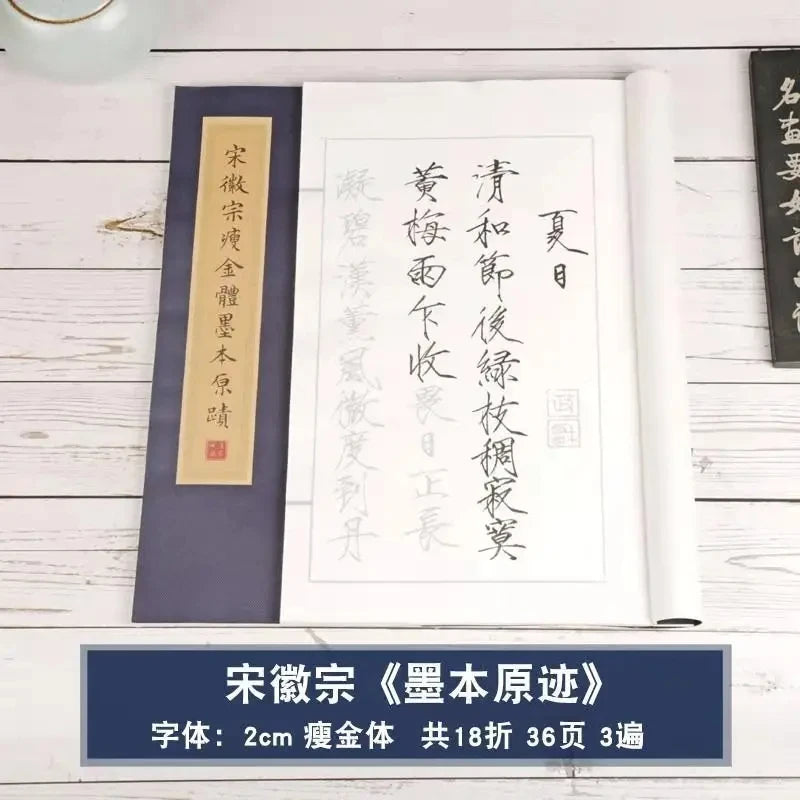 宋徽宗瘦金體墨本原蹟
夏日
清和節後緑枝稠寂寞
黄梅雨乍收畏日正長
凝碧漢薰風微度到丹
名畫要如
宋徽宗《墨本原迹》
字体：2cm 瘦金体 共18折 36页 3遍